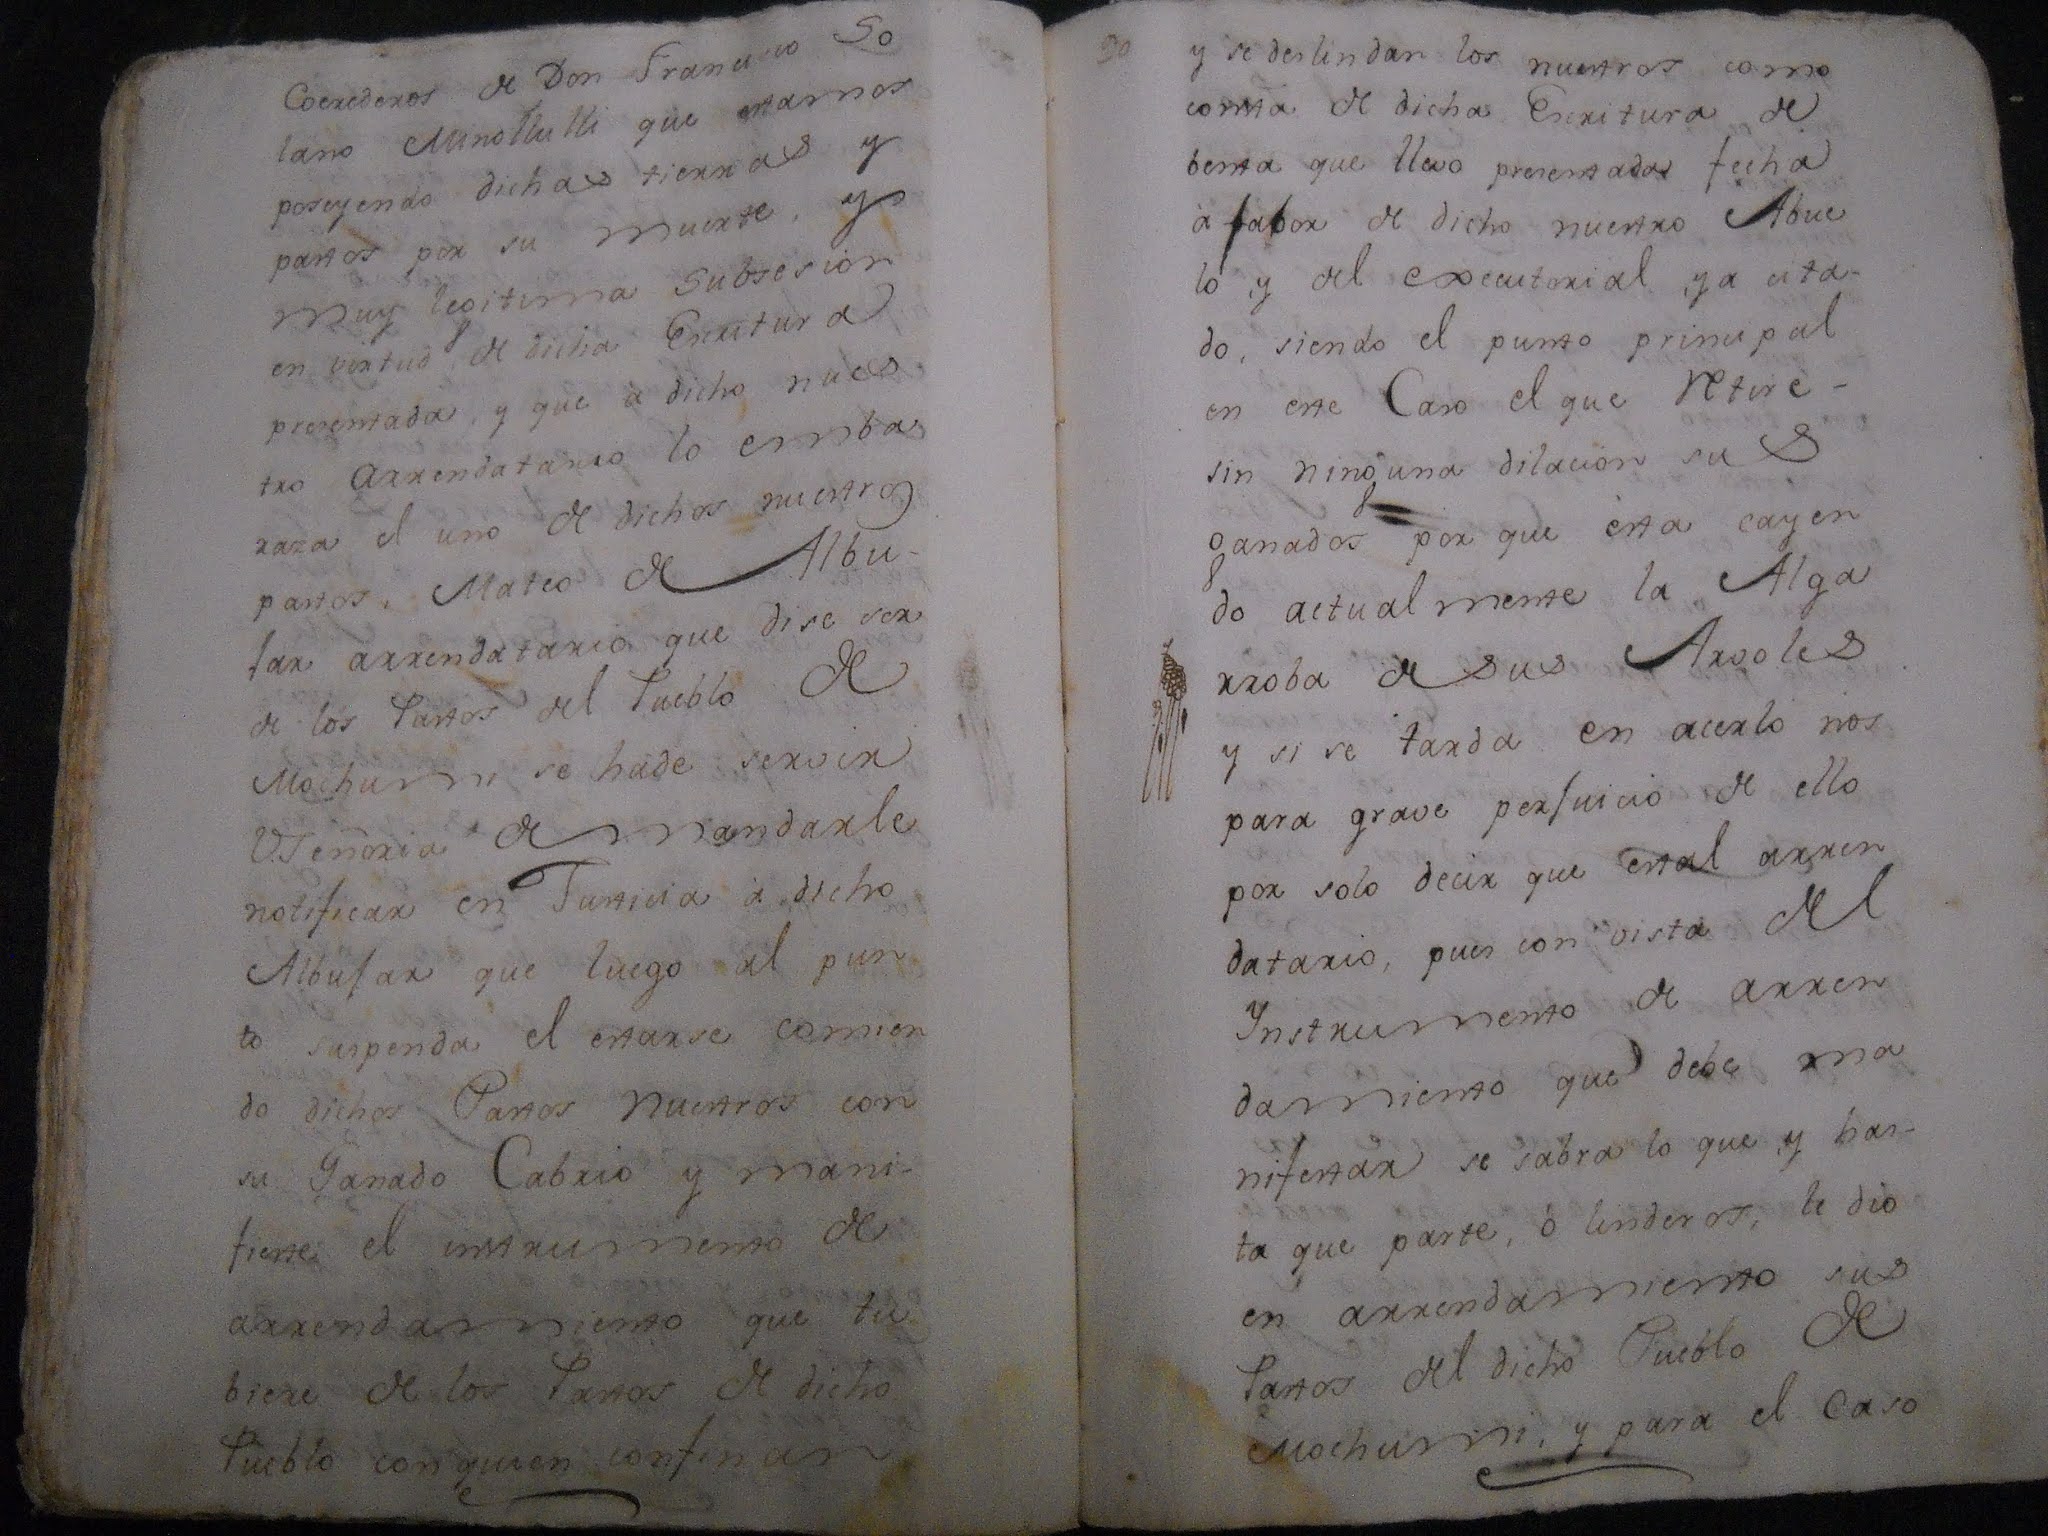 Coerederos de Don Francisco So
lano Minollulli que estamos
poseyendo dichas tierras y
pastos por su muerte, y
muy legitima Subsesion
en virtud de dicha Escritura
presentada, y que à dicho nues
tro Arrendatario lo emba
raza el uno de dichos nuestros
pastos, Mateo de Albu-
jar arrendatario que dise ser
de los Pastos del Pueblo de
Mochumi se hade servir
VSeñoria de mandarle
notificar en Justicia à dicho
Albujar que luego al pun
to suspenda el estarse comien
do dichos Pastos Nuestros con
su Ganado Cabrio y mani-
fieste el instrumento de
arrendamiento que tu
biere de los Pastos de dicho
Pueblo con quien confinan
90
y se deslindan los nuestros como
consta de dicha Escritura de
benta que llevo presentada fecha
à fabor de dicho nuestro Abue
lo y del executorial ya cita-
do, siendo el punto principal
en este Caso el que Retire-
sin ninguna dilacion sus
ganados por que èsta cayen
do actualmente la Alga
rroba de sus Arvoles
y si se tarda en acerlo nos
para grave perjuicio de ello
por solo decir que estal arren
datario, pues con vista del
Ynstrumento de arren
damiento que debe ma
nifestar se sabra lo que y has-
ta que parte, ò linderos, le dio
en arrendamiento sus
Pastos del dicho Pueblo de
Mochumi, y para el caso